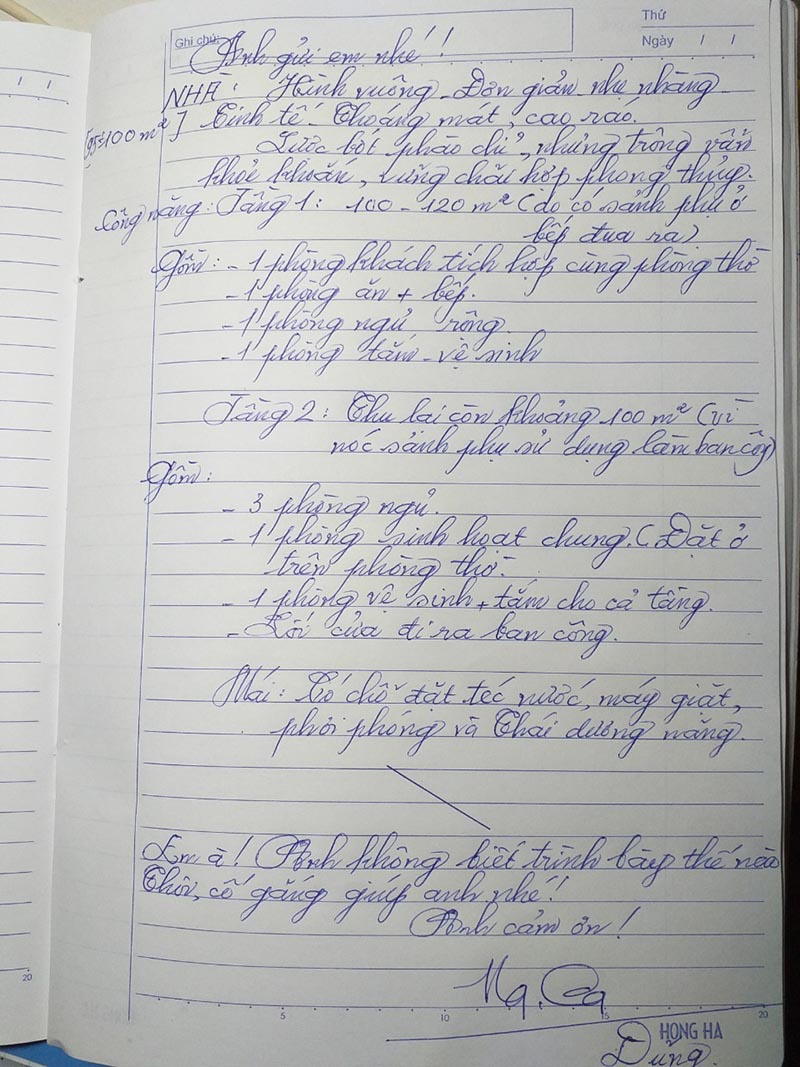 Ghi chú:
Thứ
Ngày / /
Anh gửi em nhé!!
NHÀ: Hình vuông - Đơn giản nhẹ nhàng
[95÷100 m²] Tinh tế - Thoáng mát, cao ráo.
Lược bớt phào chỉ, nhưng trông vẫn
khỏe khoắn, vững chãi hợp phong thủy.
Công năng: Tầng 1: 100 - 120 m² (do có sảnh phụ ở
bếp đua ra)
Gồm: - 1 phòng khách tích hợp cùng phòng thờ
- 1 phòng ăn + bếp.
- 1 phòng ngủ rộng.
- 1 phòng tắm - vệ sinh
Tầng 2: Thu lại còn khoảng 100 m² (vì
nóc sảnh phụ sử dụng làm ban công)
Gồm:
- 3 phòng ngủ.
- 1 phòng sinh hoạt chung. (Đặt ở
trên phòng thờ.
- 1 phòng vệ sinh + tắm cho cả tầng.
- Lối cửa đi ra ban công.
Mái: Có chỗ đặt téc nước, máy giặt,
phơi phóng và Thái dương năng.
Em à! Anh không biết trình bày thế nào
Thôi, cố gắng giúp anh nhé!
Anh cảm ơn!
5 10 15 20
20
HONG HA
Dũng.